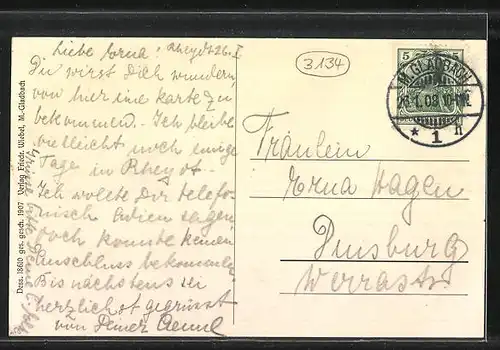 Liebe Erna! Rheydt 26. I
Du wirst Dich wundern
von hier eine Karte zu
bekommen. Ich bleibe
vielleicht noch einige
Tage in Rheydt.
Ich wollte Dir telefo-
nisch Adieu sagen
doch konnte keinen
Anschluss bekommen
Bis nächstens sei
herzlichst gegrüsst
von Deiner
Dess. 18610 ges. gesch. 1907 Verlag Friedr. Wiebel, M.-Gladbach
3134
5 5
M. GLADBACH
26.1.08 10-11V.
* 1 h
Fräulein
Erna Hagen
Duisburg
Werrastr